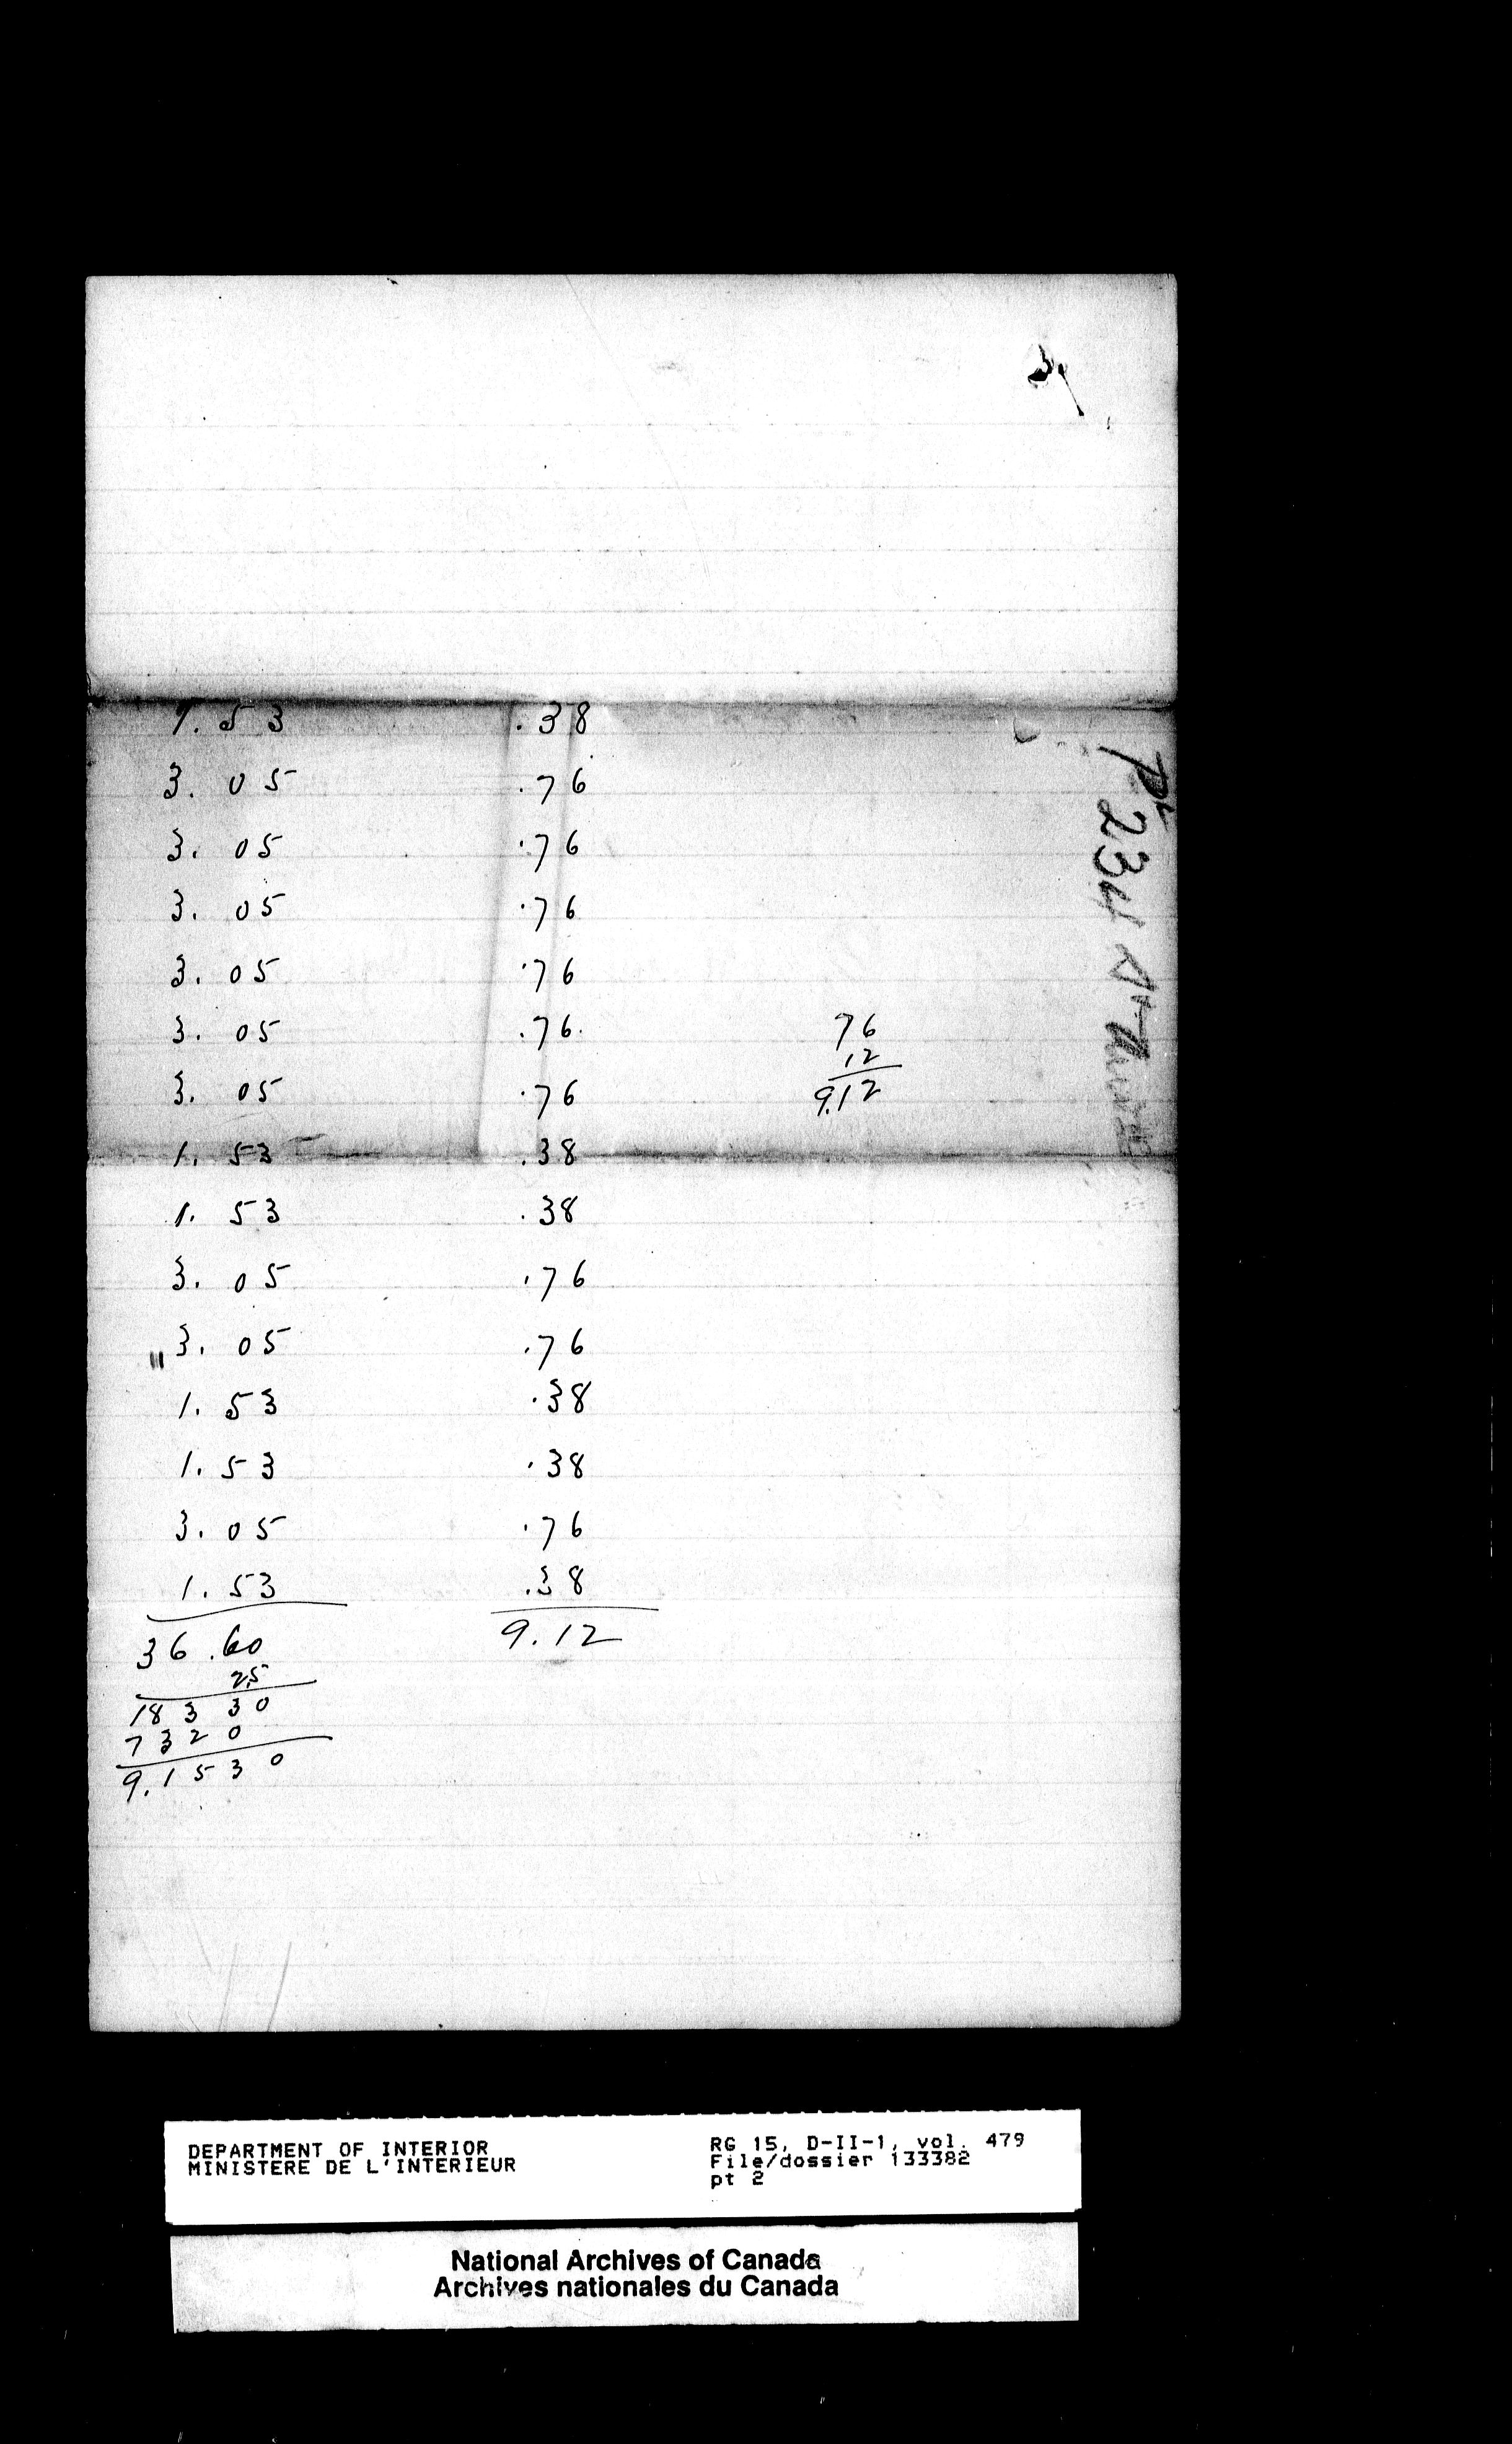 3.
1. 53 .38
3. 05 .76
3. 05 .76
3. 05 .76
3. 05 .76
3. 05 .76.
3. 05 .76
1. 53 .38
1. 53 .38
3. 05 .76
3. 05 .76
1. 53 .38
1. 53 .38
3. 05 .76
1. 53 .38
36.60 9.12
25
18330
7320
9.1530
76
12
9.12
234
DEPARTMENT OF INTERIOR
MINISTERE DE L'INTERIEUR
RG 15, D-II-1, vol. 479
File/dossier 133382
pt 2
National Archives of Canada
Archives nationales du Canada